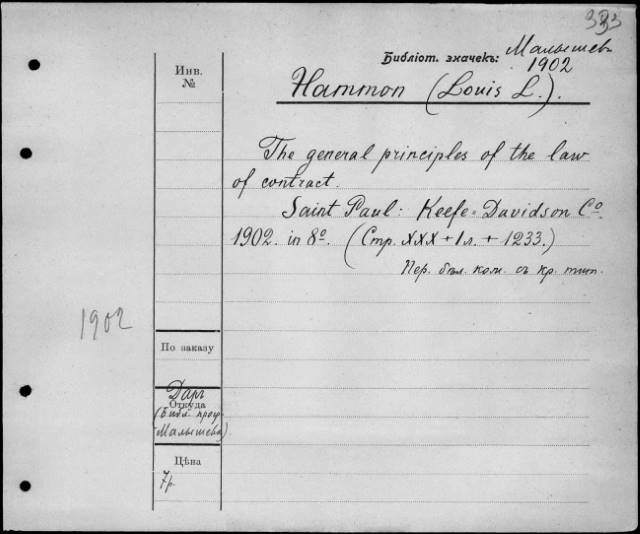 333
Библіот. значекъ: Малышев
1902
Инв.
№
Hammon (Louis L.).
The general principles of the law
of contract.
Saint Paul: Keefe-Davidson Co.
1902. in 8o. (Стр. XXX + 1 л. + 1233.)
Пер. бѣл. кож. съ кр. тит.
1902
По заказу
Даръ
Откуда
(Библ. проф.
Малышева)
Цѣна
7р